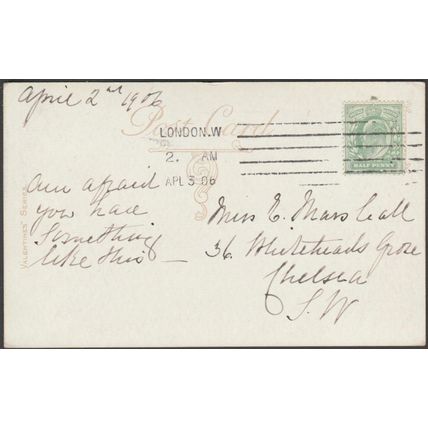 April 2nd 1906
Post Card
LONDON.W
2. AM
APL 3 06
HALFPENNY
VALENTINES' SERIES
Am afraid
you have
something
like this —
Miss E. Marshall
36 Whiteheads Grove
Chelsea
S.W